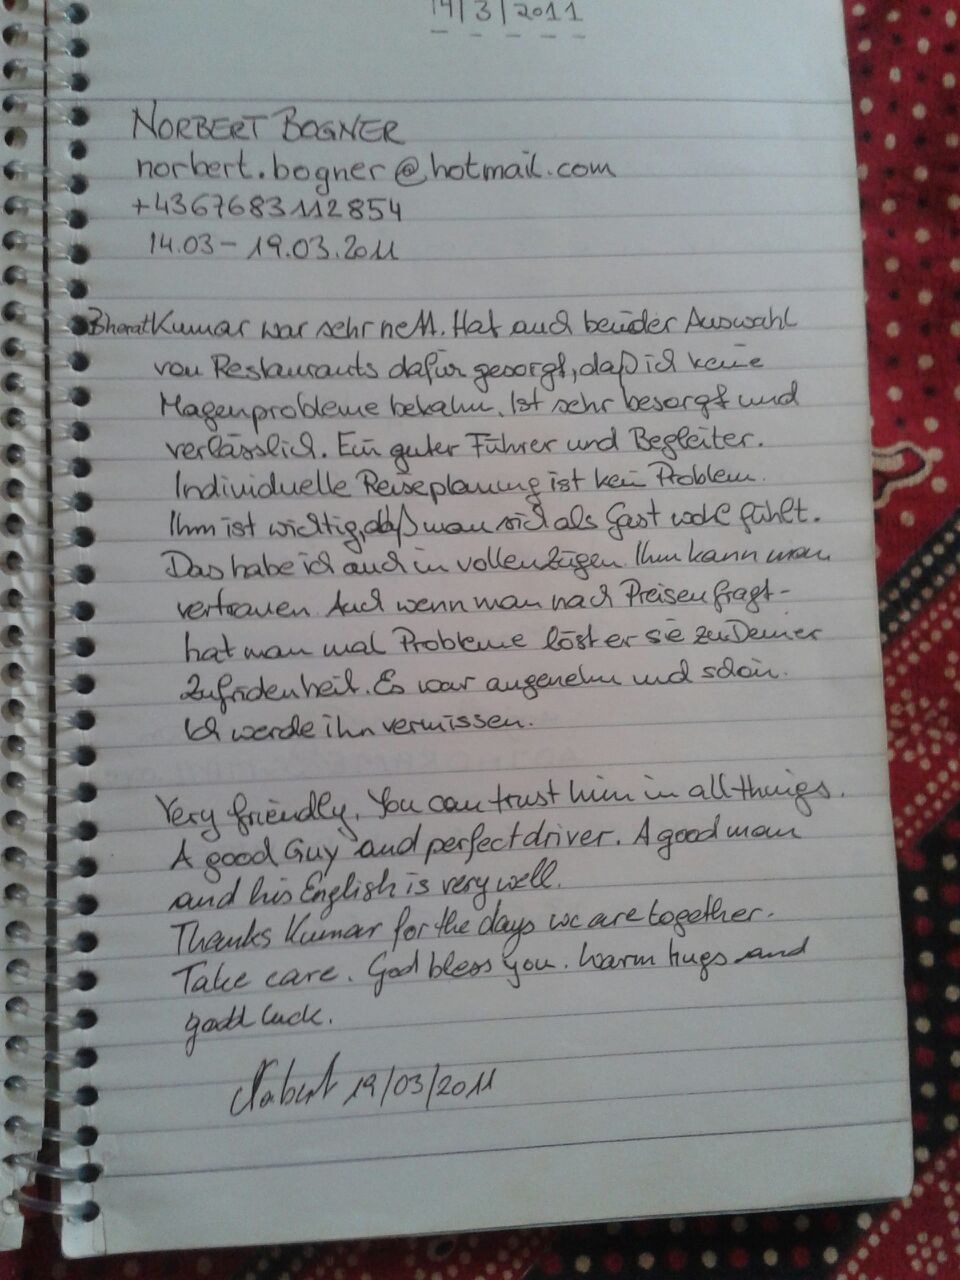 14/3/2011
NORBERT BOGNER
norbert.bogner@hotmail.com
+4367683112854
14.03-19.03.2011
Bharat Kumar war sehr nett. Hat auch bei der Auswahl
von Restaurants dafür gesorgt, daß ich keine
Magenprobleme bekahm. Ist sehr besorgt und
verlässlich. Ein guter Führer und Begleiter.
Individuelle Reiseplanung ist kein Problem.
Ihm ist wichtig, daß man sich als Gast wohl fühlt.
Das habe ich auch in vollen Zügen. Ihm kann man
vertrauen. Auch wenn man nach Preisen fragt-
hat man mal Probleme löst er sie zu Deiner
Zufridenheit. Es war angenehm und schön.
Ich werde ihn vermissen.
Very friendly. You can trust him in all things.
A good Guy and perfect driver. A good man
and his English is very well.
Thanks Kumar for the days we are together.
Take care. God bless you. Warm hugs and
good luck.
Norbert 19/03/2011